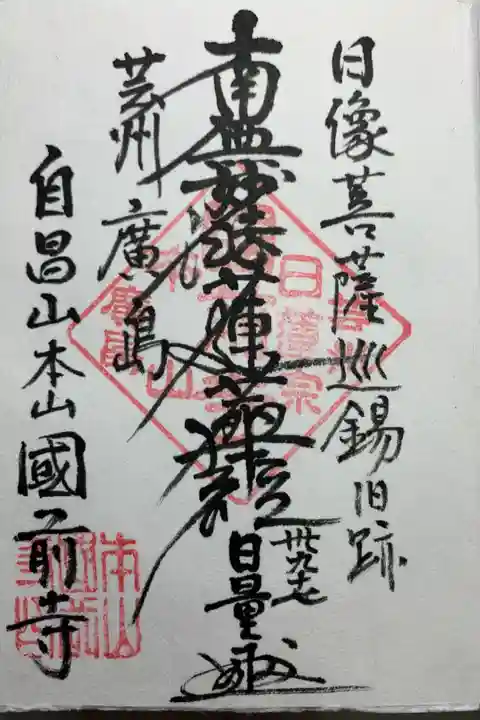 日像菩薩巡錫旧跡
南無妙法蓮華経
卅九七
日量
芸州廣島
自昌山本山國前寺
日蓮宗
本山